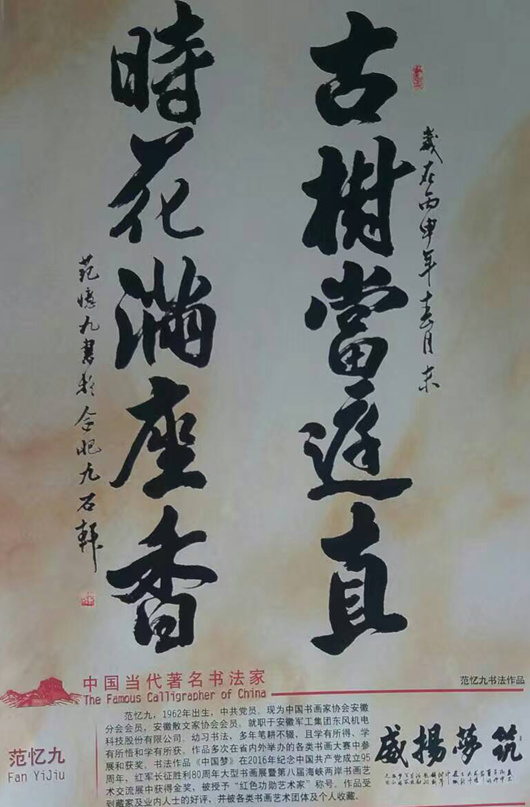 古樹當庭真
歲在丙申年
時花滿座香
范憶九書於合肥九石軒
中国当代著名书法家
The Famous Calligrapher of China
范忆九书法作品
范忆九
Fan YiJiu
范忆九，1962年出生，中共党员。现为中国书画家协会安徽
分会会员，安徽散文家协会会员。就职于安徽军工集团东风机电
科技股份有限公司。幼习书法，多年笔耕不辍，且学有所得、学
有所悟和学有所获。作品多次在省内外举办的各类书画大赛中参
展和获奖。书法作品《中国梦》在2016年纪念中国共产党成立95
周年、红军长征胜利80周年大型书画展暨第八届海峡两岸书画艺
术交流展中获得金奖，被授予“红色功勋艺术家”称号。作品受
到藏家及业内人士的好评，并被各类书画艺术团体及个人收藏。
筑夢揚威